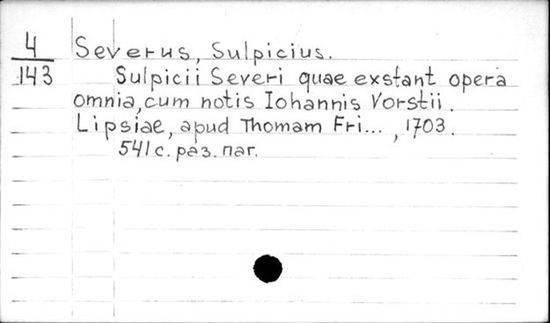 4 Severus, Sulpicius.
143 Sulpicii Severi quae exstant opera
omnia, cum notis Iohannis Vorstii.
Lipsiae, apud Thomam Fri..., 1703.
541 с. раз. паг.